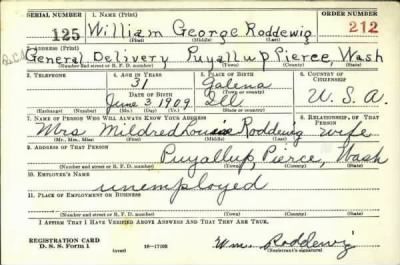 SERIAL NUMBER 1. NAME (Print) ORDER NUMBER
125 William George Roddewig 212
(First) (Middle) (Last)
2. ADDRESS (Print)
General Delivery Puyallup Pierce, Wash
(Number and street or R. F. D. number) (Town) (County) (State)
3. TELEPHONE 4. AGE IN YEARS 5. PLACE OF BIRTH 6. COUNTRY OF CITIZENSHIP
31 Galena
DATE OF BIRTH (Town or county)
June 3 1909 Ill U.S.A.
(Exchange) (Number) (Mo.) (Day) (Yr.) (State or country)
7. NAME OF PERSON WHO WILL ALWAYS KNOW YOUR ADDRESS 8. RELATIONSHIP OF THAT PERSON
Mrs Mildred Roddewig wife
(Mr., Mrs., Miss) (First) (Middle) (Last)
9. ADDRESS OF THAT PERSON
Puyallup, Pierce, Wash
(Number and street or R. F. D. number) (Town) (County) (State)
10. EMPLOYER'S NAME
unemployed
11. PLACE OF EMPLOYMENT OR BUSINESS
(Number and street or R. F. D. number) (Town) (County) (State)
I AFFIRM THAT I HAVE VERIFIED ABOVE ANSWERS AND THAT THEY ARE TRUE.
REGISTRATION CARD
D. S. S. Form 1 (over) Wm. Roddewig
(Registrant's signature)